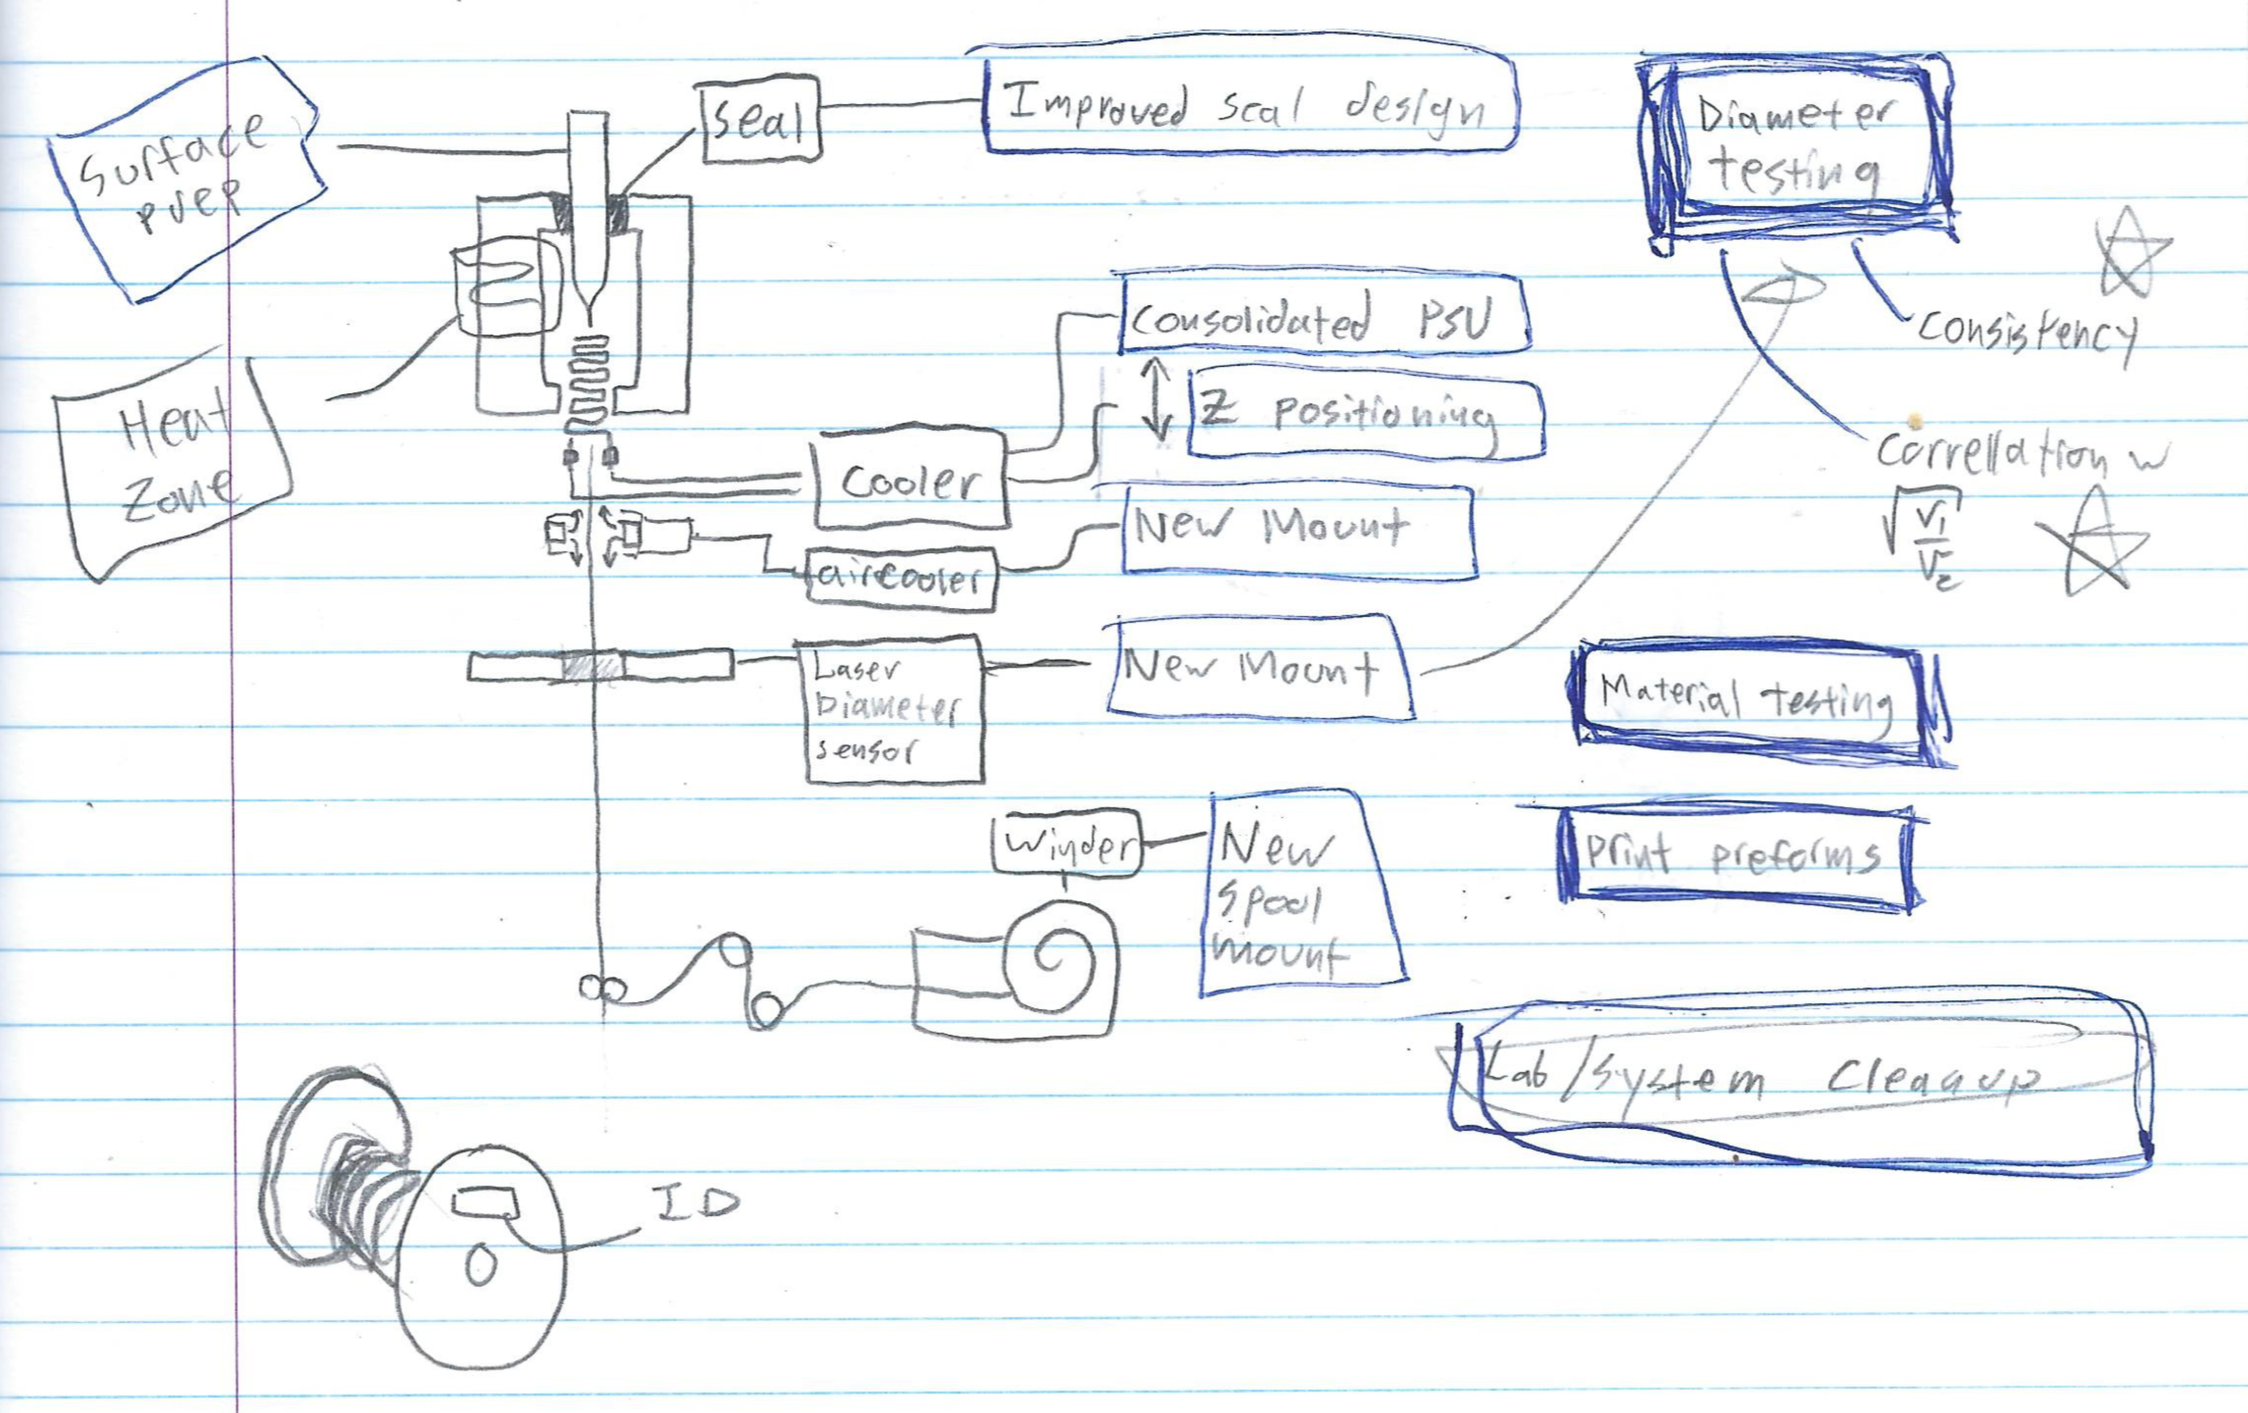 Surface
prep
seal
Improved seal design
Diameter
testing
Consolidated PSU
consistency
Heat
Zone
Z positioning
cooler
Correllation w
√V1/V2
New Mount
aircooler
Laser
Diameter
sensor
New Mount
Material testing
Winder
New
spool
mount
Print preforms
Lab/System Cleanup
ID